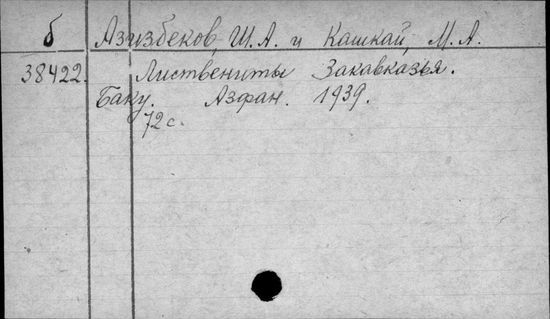 б Азизбеков, Ш.А. и Кашкай, М.А.
38422. Листвениты Закавказья.
Баку. Азфан. 1939.
72 с.